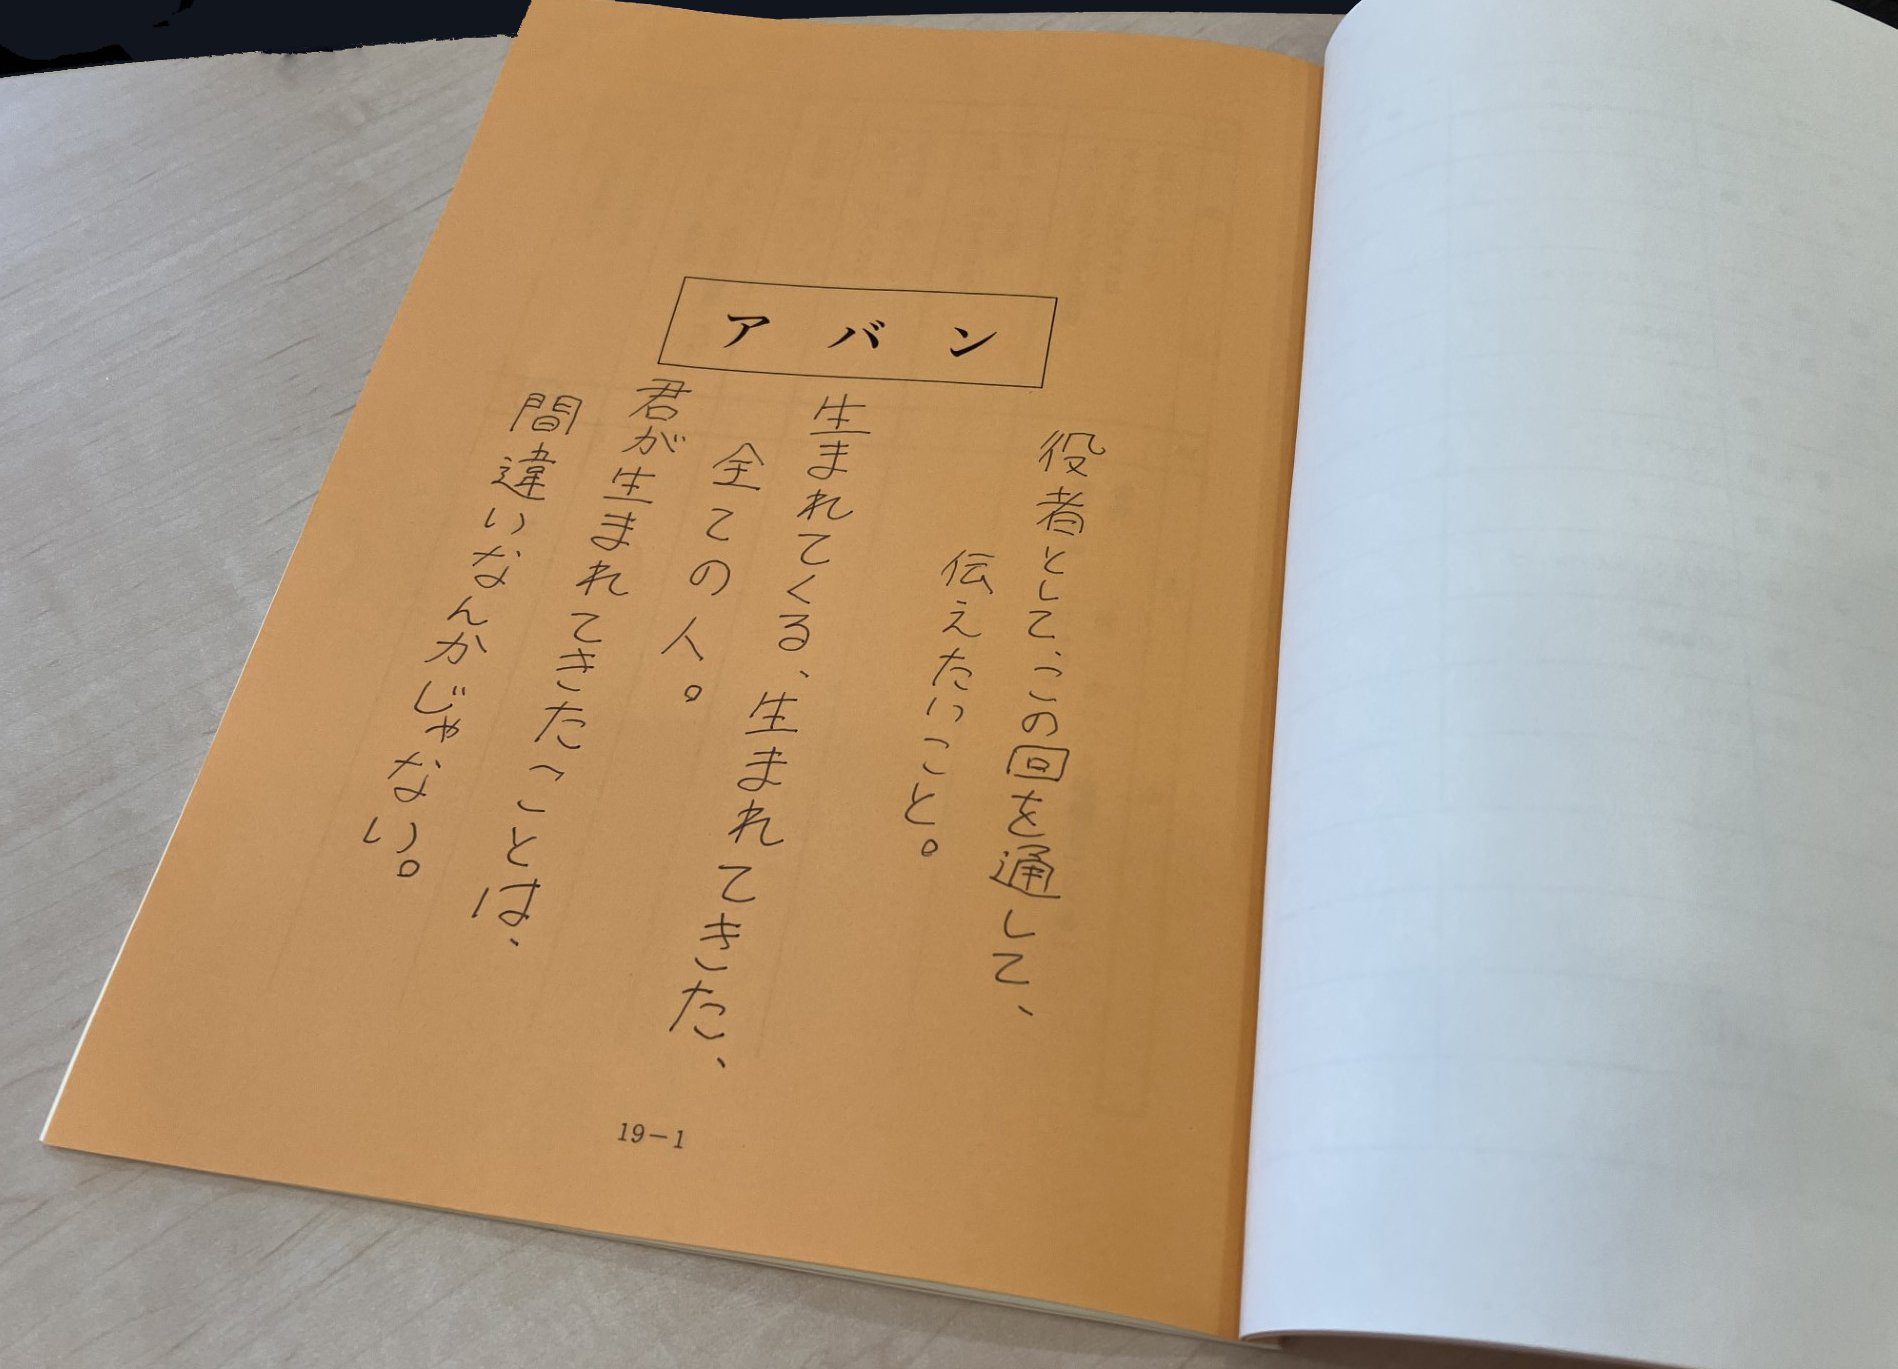 アバン
役者として、この回を通して、
伝えたいこと。
生まれてくる、生まれてきた、
全ての人。
君が生まれてきたことは、
間違いなんかじゃない。
19-1